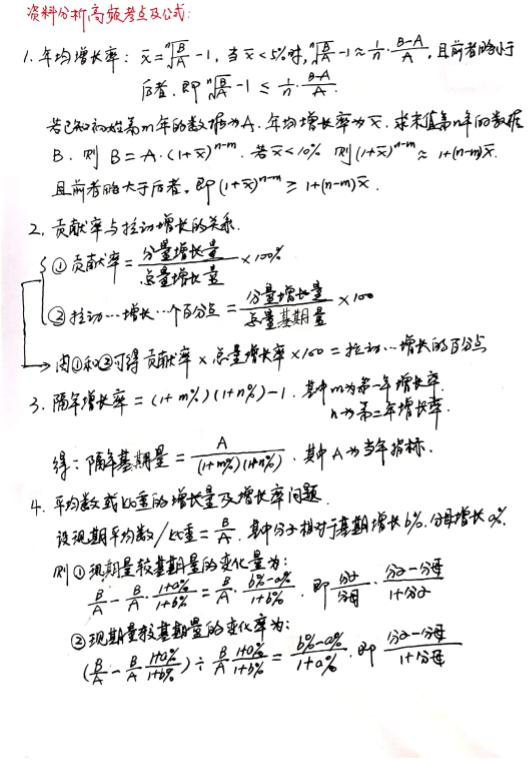 资料分析高频考点及公式:
1. 年均增长率: x̄=ⁿ√(B/A) -1, 当x̄<5%时, ⁿ√(B/A) -1≈1/n·(B-A)/A, 且前者略小于
后者, 即 ⁿ√(B/A) -1 ≤ 1/n·(B-A)/A.
若已知初始第m年的数据为A, 年均增长率为x̄, 求末值第n年的数据
B, 则 B=A·(1+x̄)ⁿ⁻ᵐ, 若x̄<10% 则(1+x̄)ⁿ⁻ᵐ≈1+(n-m)x̄,
且前者略大于后者, 即(1+x̄)ⁿ⁻ᵐ≥1+(n-m)x̄.
2, 贡献率与拉动增长的关系.
①贡献率=分量增长量/总量增长量×100%
②拉动…增长…个百分点=分量增长量/总量基期量×100
由①和②可得 贡献率×总量增长率×100=拉动…增长的百分点
3. 隔年增长率=(1+m%)(1+n%)-1, 其中m为第一年增长率,
n为第二年增长率.
得: 隔年基期量=A/((1+m%)(1+n%)), 其中A为当年指标.
4. 平均数或比重的增长量及增长率问题.
设现期平均数/比重=B/A, 其中分子相对于基期增长b%, 分母增长a%,
则①现期量较基期量的变化量为:
B/A-B/A·(1+a%)/(1+b%)=B/A·(b%-a%)/(1+b%), 即 分子/分母·(分子-分母)/(1+分子)
②现期量较基期量的变化率为:
(B/A-B/A (1+a%)/(1+b%))÷B/A (1+a%)/(1+b%)=(b%-a%)/(1+a%), 即 (分子-分母)/(1+分母)